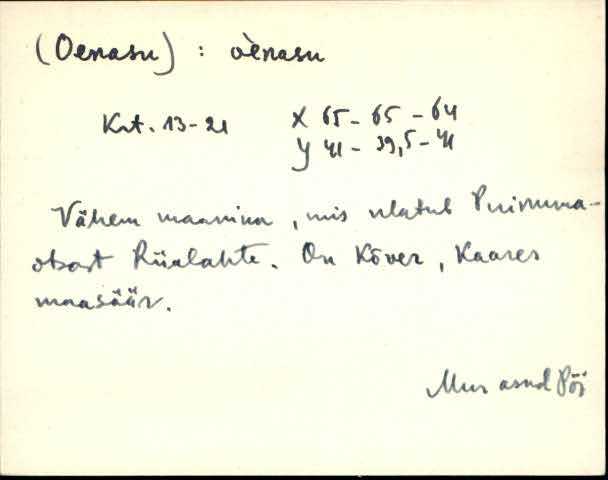 (Oenasu) : oènasu
Krt. 13-21 X 65 - 65 - 64
Y 41 - 39,5 - 41
Vähem maanina, mis ulatub
otsast Riialahte. On Kõver, Kaares
maasäär.
Mus asnd Pöi